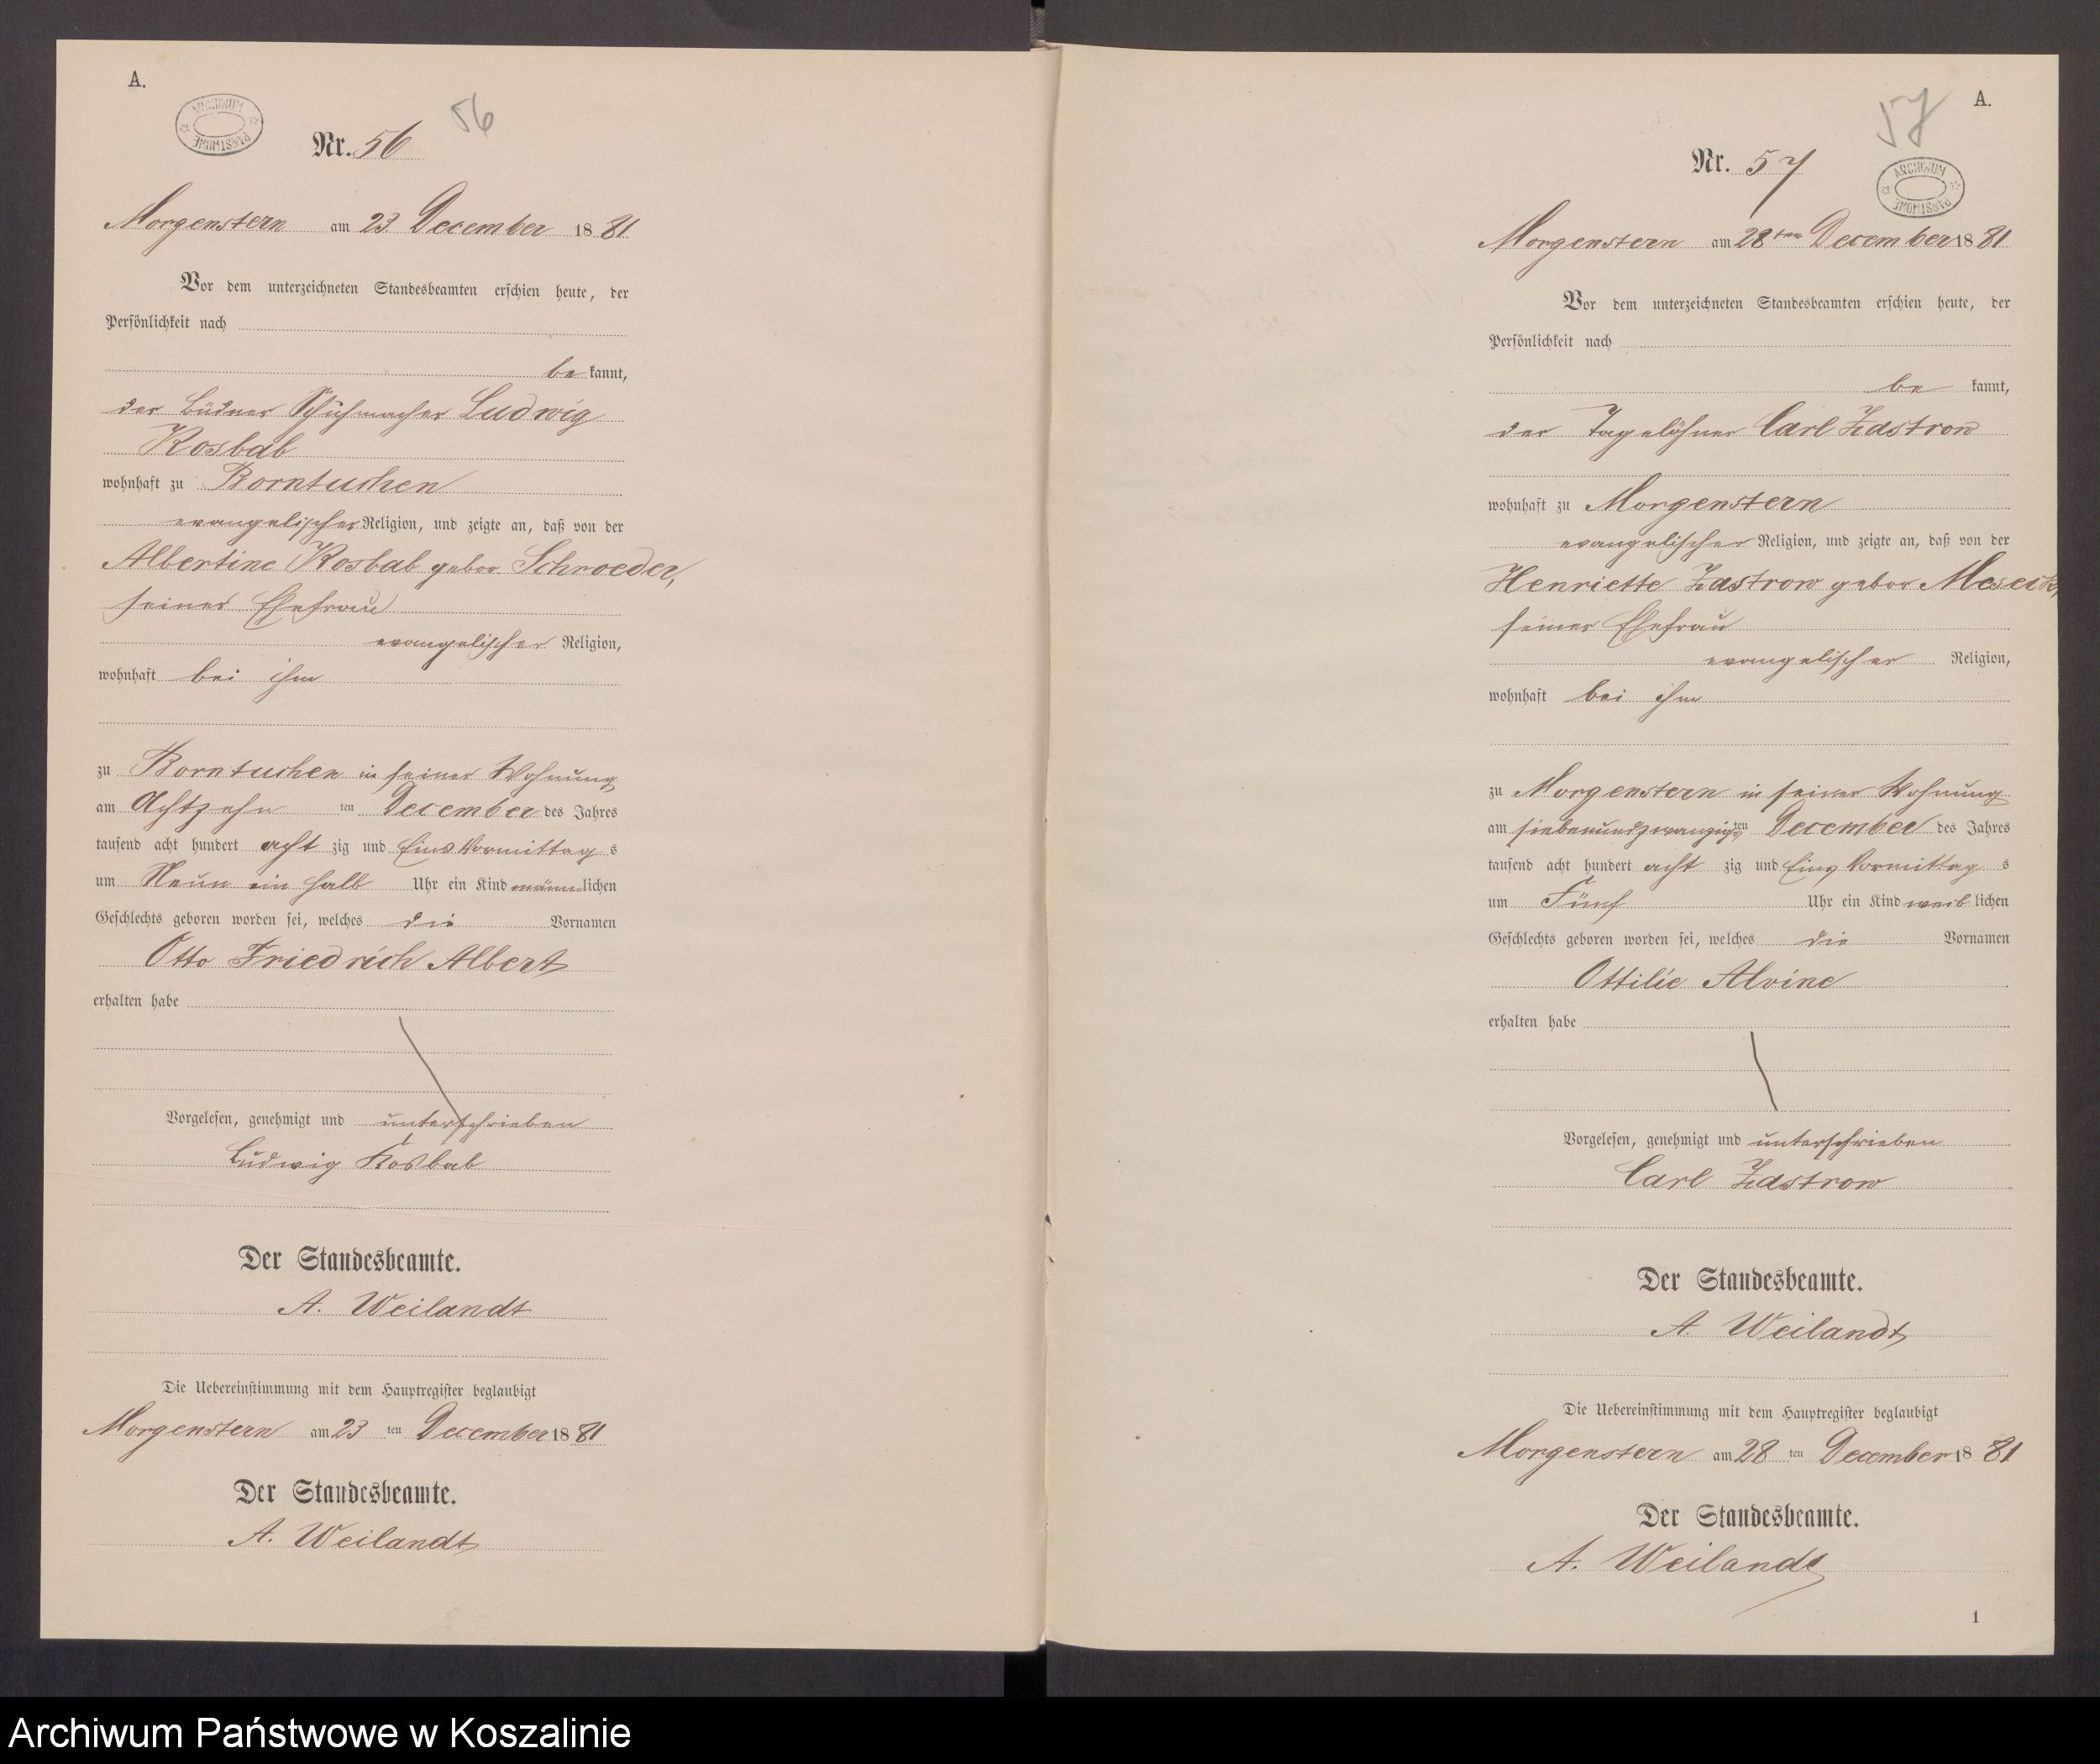 A.
ARCHIWUM PAŃSTWOWE
Nr. 56
56
Morgenstern am 23 December 1881
Vor dem unterzeichneten Standesbeamten erschien heute, der
Persönlichkeit nach
be kannt,
der Büdner Schuhmacher Ludwig
Kosbab
wohnhaft zu Borntuchen
evangelischer Religion, und zeigte an, daß von der
Albertine Kosbab gebor Schroeder,
seiner Ehefrau
evangelischer Religion,
wohnhaft bei ihm
zu Borntuchen in seiner Wohnung
am Achtzehn ten December des Jahres
tausend acht hundert acht zig und Eins Vormittag s
um Neun ein halb Uhr ein Kind männlichen
Geschlechts geboren worden sei, welches die Vornamen
Otto Friedrich Albert
erhalten habe
Vorgelesen, genehmigt und unterschrieben
Ludwig Kosbab
Der Standesbeamte.
A. Weilandt
Die Uebereinstimmung mit dem Hauptregister beglaubigt
Morgenstern am 23 ten December 1881
Der Standesbeamte.
A. Weilandt
57
A.
Nr. 57
ARCHIWUM PAŃSTWOWE
Morgenstern am 28ten December 1881
Vor dem unterzeichneten Standesbeamten erschien heute, der
Persönlichkeit nach
be kannt,
der Tagelöhner Carl Zastrow
wohnhaft zu Morgenstern
evangelischer Religion, und zeigte an, daß von der
Henriette Zastrow gebor
seiner Ehefrau
evangelischer Religion,
wohnhaft bei ihm
zu Morgenstern in seiner Wohnung
am siebenundzwanzigten December des Jahres
tausend acht hundert acht zig und Eins Vormittag s
um Fünf Uhr ein Kind weib lichen
Geschlechts geboren worden sei, welches die Vornamen
Ottilie Alvine
erhalten habe
Vorgelesen, genehmigt und unterschrieben
Carl Zastrow
Der Standesbeamte.
A. Weilandt
Die Uebereinstimmung mit dem Hauptregister beglaubigt
Morgenstern am 28 ten December 1881
Der Standesbeamte.
A. Weilandt
1
Archiwum Państwowe w Koszalinie